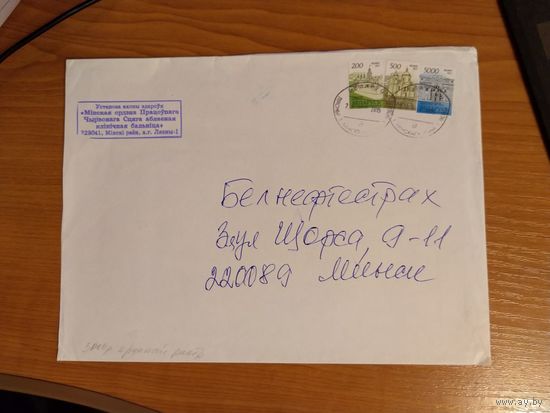 200 500 5000
Установа аховы здароўя
«Мінская ордэна Працоўнага
Чырвонага Сцяга абласная
клінічная бальніца»
223041, Мінскі раён, а.г. Лясны-1
Белнефтестрах
3 ул Щорса, 9-11
220089 Минск
www.ay.by